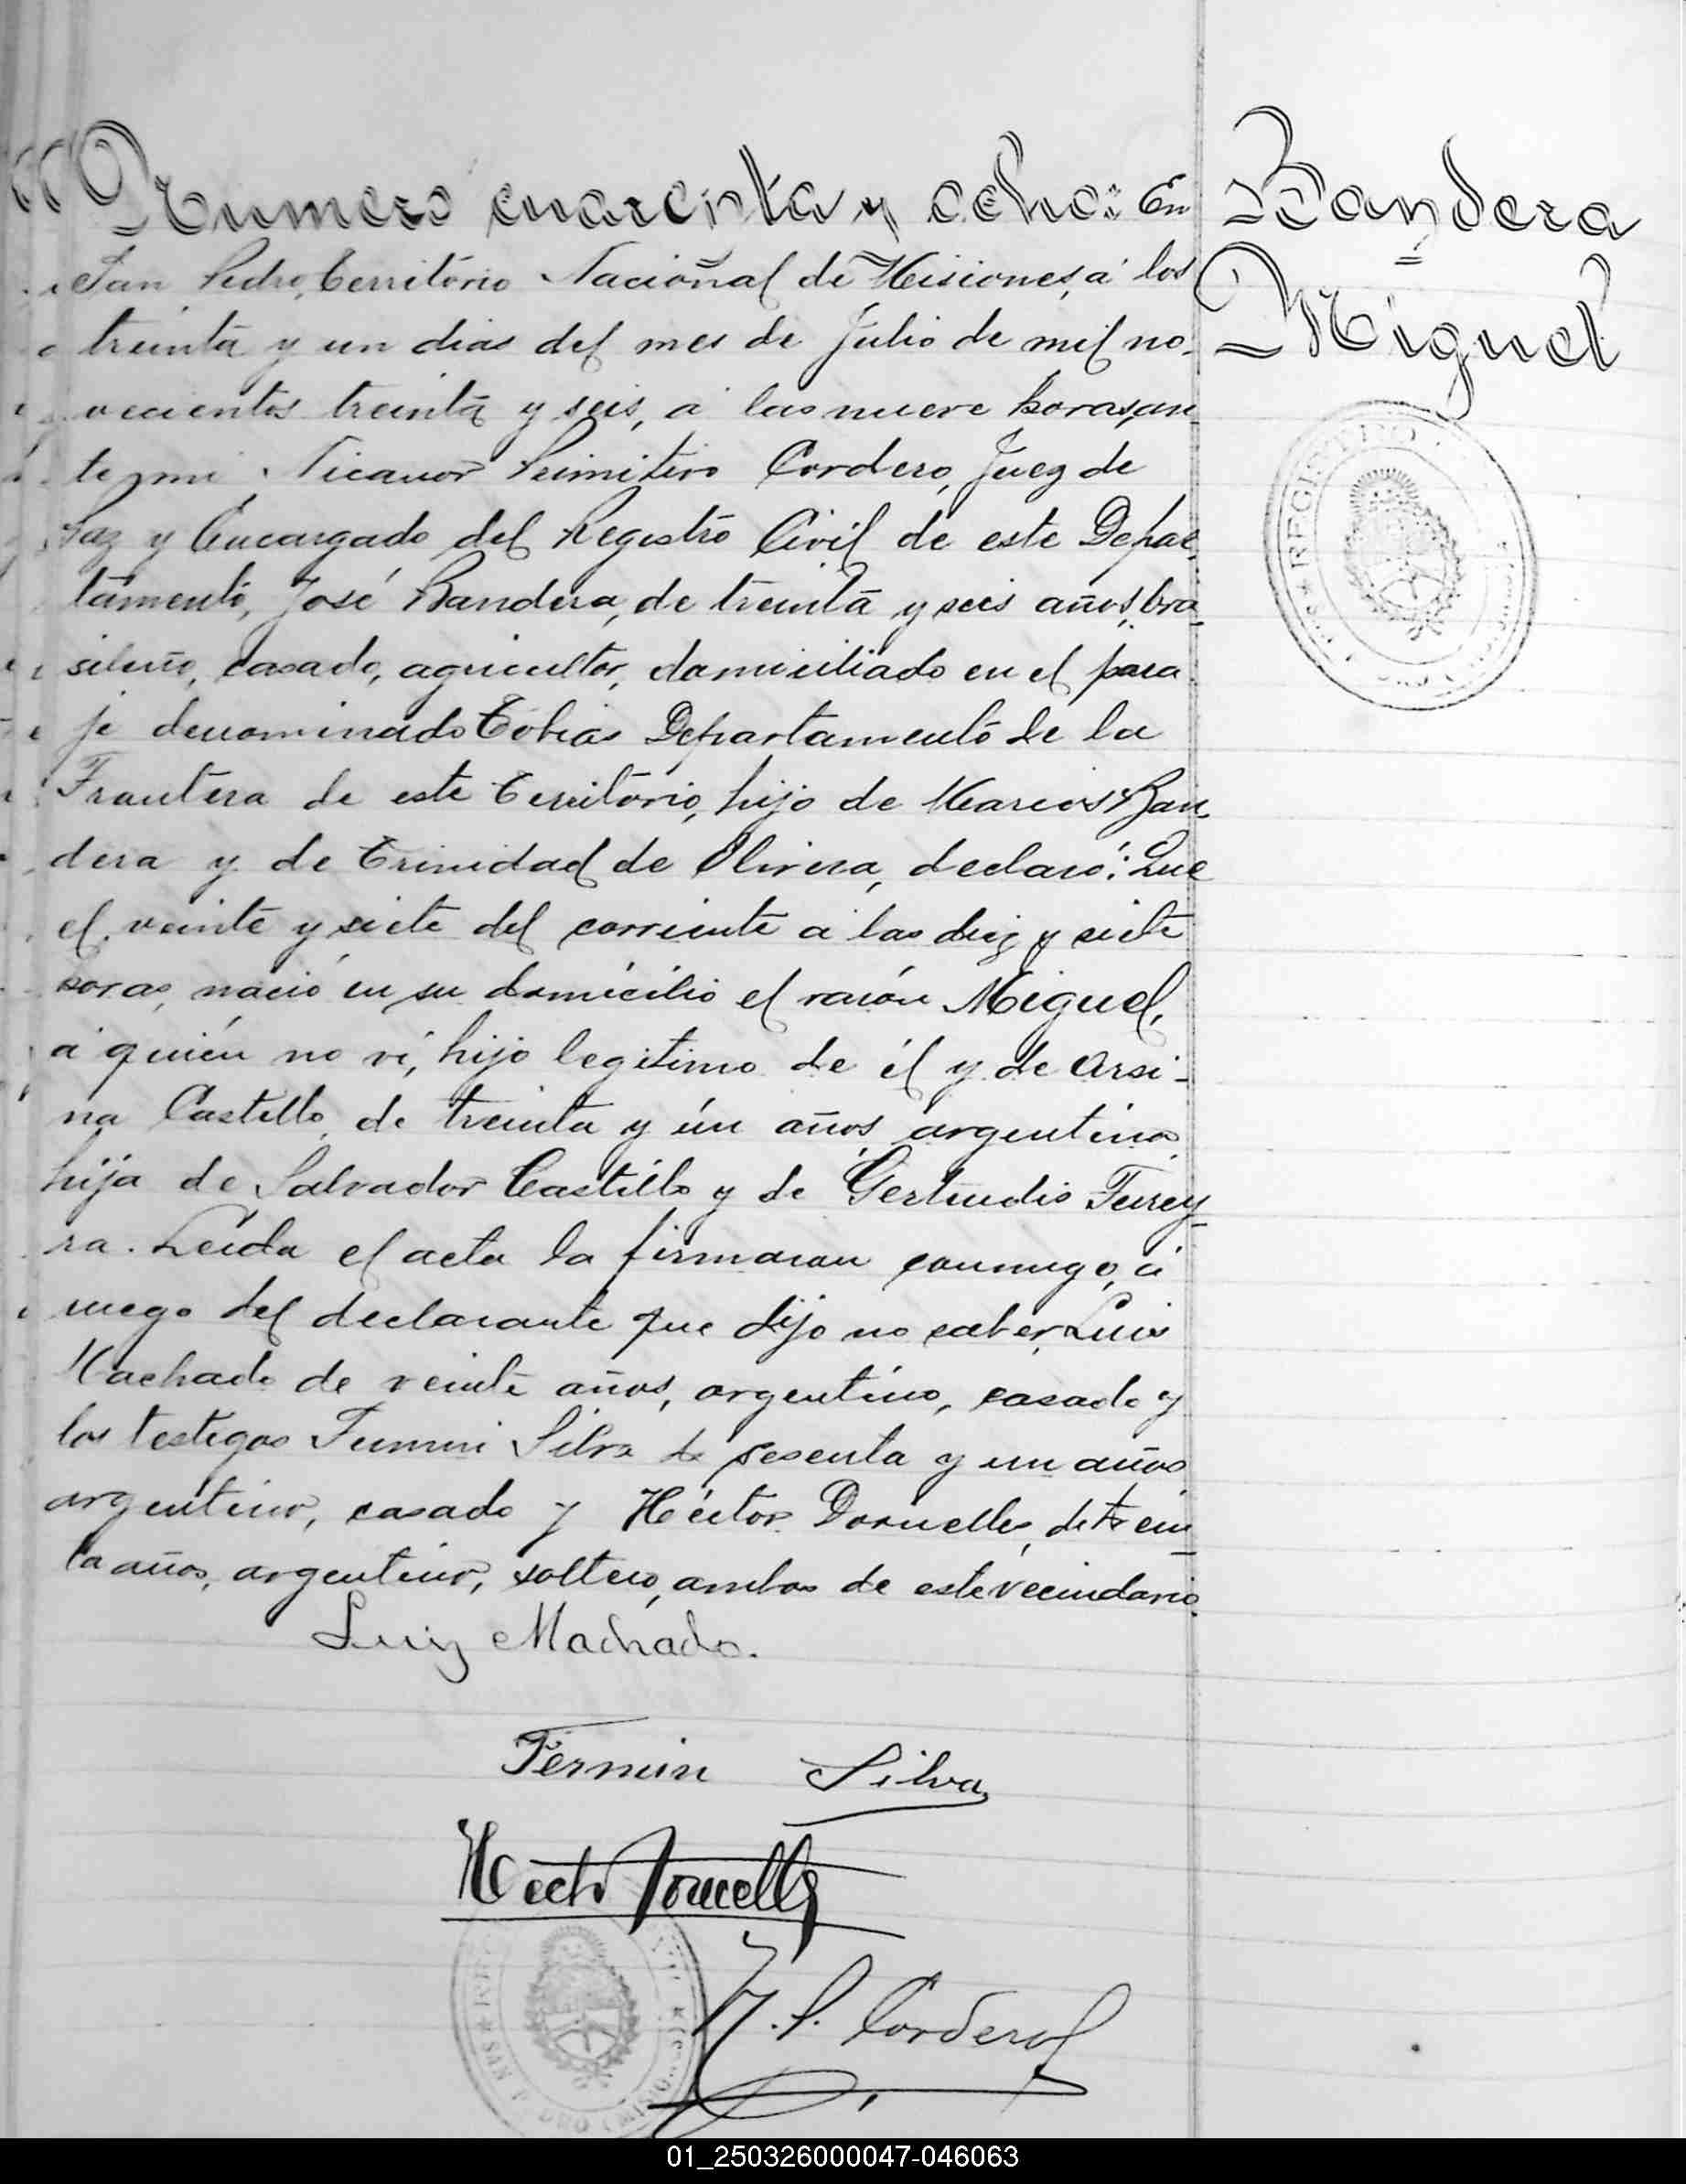 Numero cuarenta y ocho: En
San Pedro, Territorio Nacional de Misiones, á los
treinta y un dias del mes de Julio de mil no-
vecientos treinta y seis, á las nueve horas, an
te mi Nicanor Primitivo Cordero, Juez de
Paz y Encargado del Registro Civil de este Depar-
tamento, José Bandera, de treinta y seis años, bra-
sileño, casado, agricultor, domiciliado en el para
je denominado Tobias Departamento de la
Frontera de este Territorio, hijo de Marcos Ban-
dera y de Trinidad de Olivera, declaró: Que
el veinte y siete del corriente a las diez y siete
horas, nació en su domicilio el varón Miguel,
á quién no ví, hijo legitimo de él y de Arsi-
na Castillo, de treinta y ún años, argentina,
hija de Salvador Castillo y de Gertrudis Ferrey-
ra. Leida el acta la firmaron conmigo, á
ruego del declarante que dijo no saber, Luis
Machado de veinte años, argentino, casado y
los testigos Fermin Silva de sesenta y un años,
argentino, casado y Héctor Dornelles, de trein-
ta años, argentino, soltero, ambos de este vecindario.
Luiz Machado.
Fermin Silva
Hector Dornelles
N. P. Cordero
Bandera
Miguel
REGISTRO
SAN PEDRO (MISIO
01_250326000047-046063